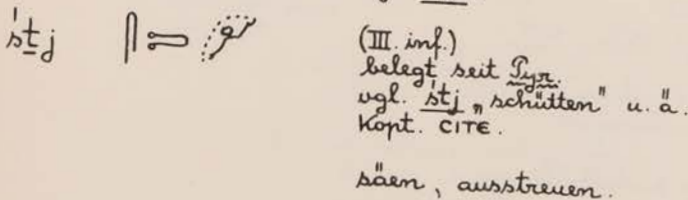 śṯj 𓋴𓍿 (III. inf.)
belegt seit Pyr.
vgl. śtj „schütten" u. ä.
Kopt. ⲥⲓⲧⲉ.
säen, ausstreuen.